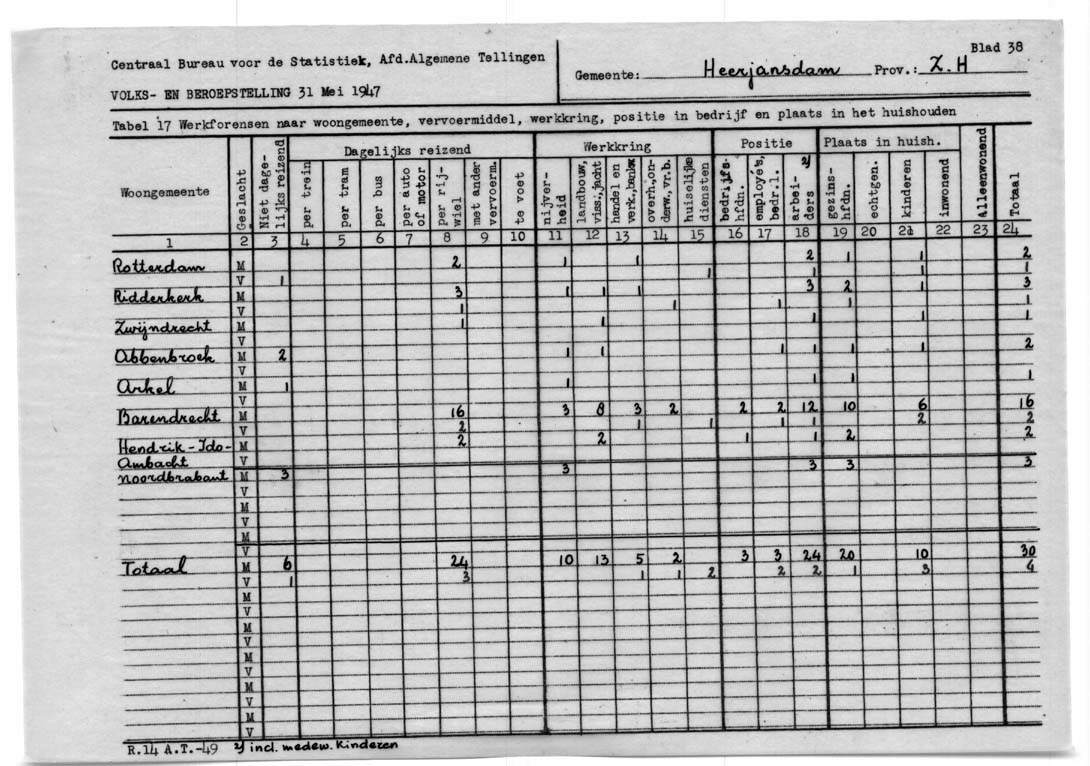 Centraal Bureau voor de Statistiek, Afd.Algemene Tellingen
VOLKS- EN BEROEPSTELLING 31 Mei 1947
Gemeente: Heerjansdam Prov.: Z.H
Blad 38
Tabel 17 Werkforensen naar woongemeente, vervoermiddel, werkkring, positie in bedrijf en plaats in het huishouden
Woongemeente Geslacht Niet dage-lijks reizend Dagelijks reizend Werkkring Positie Plaats in huish. Alleenwonend Totaal
per trein per tram per bus per auto of motor per rij-wiel met ander vervoerm. te voet nijver-heid landbouw, viss.,jacht handel en verk.,bankw overh.,on-derw.,vr.b. huiselijke diensten bedrijfs-hfdn. employé's, bedr.l. arbei-ders 2/ gezins-hfdn. echtgen. kinderen inwonend
1 2 3 4 5 6 7 8 9 10 11 12 13 14 15 16 17 18 19 20 21 22 23 24
Rotterdam M 2 1 1 2 1 1 2
V 1 1 1 1 1
Ridderkerk M 3 1 1 1 3 2 1 3
V 1 1 1 1 1
Zwijndrecht M 1 1 1 1 1
V
Abbenbroek M 2 1 1 1 1 1 1 2
V
Arkel M 1 1 1 1 1
V
Barendrecht M 16 3 8 3 2 2 2 12 10 6 16
V 2 1 1 1 1 2 2
Hendrik-Ido- M 2 2 1 1 2 2
Ambacht V
Noordbrabant M 3 3 3 3 3
V
M
V
M
V
Totaal M 6 24 10 13 5 2 3 3 24 20 10 30
V 1 3 1 1 2 2 2 1 3 4
M
V
M
V
M
V
M
V
M
V
R.14 A.T.-49 2/ incl. medew. Kinderen